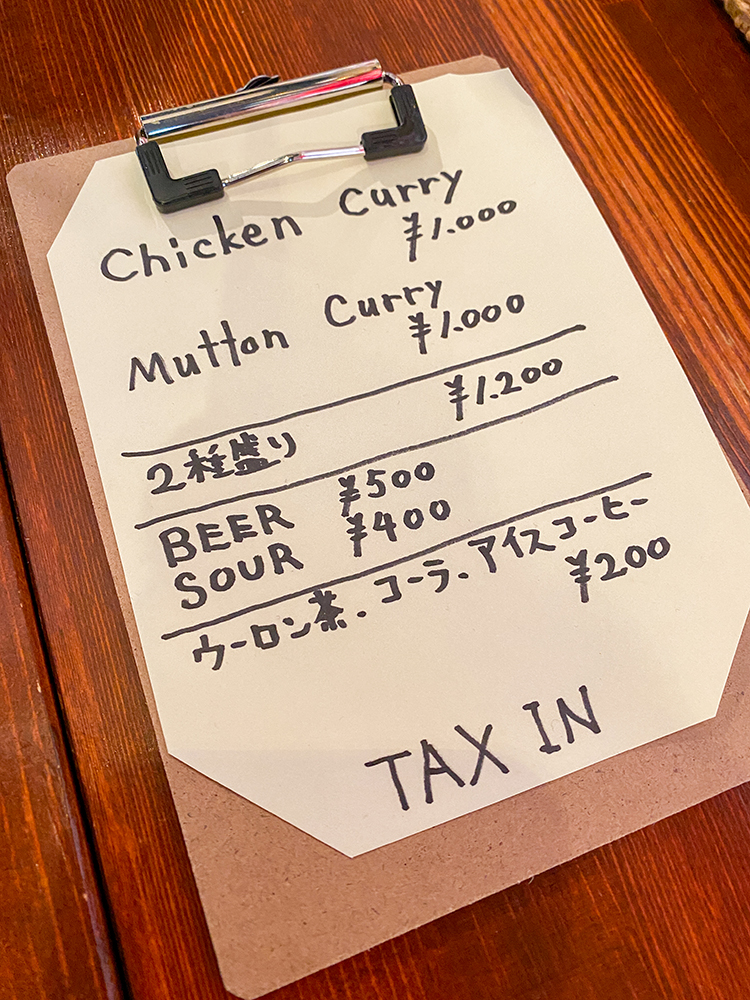 Chicken Curry
¥1.000
Mutton Curry
¥1.000
2種盛り ¥1.200
BEER ¥500
SOUR ¥400
ウーロン茶、コーラ、アイスコーヒー
¥200
TAX IN